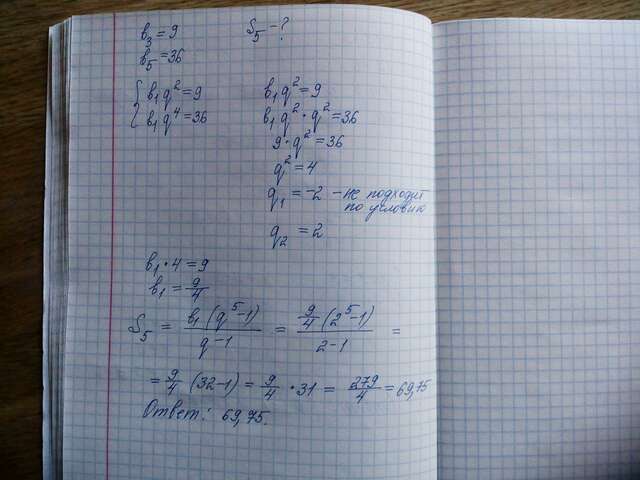 b₃ = 9 S₅ - ?
b₅ = 36
{ b₁q² = 9 b₁q² = 9
b₁q⁴ = 36 b₁q² · q² = 36
9 · q² = 36
q² = 4
q₁ = -2 - не подходит
по условию
q₂ = 2
b₁ · 4 = 9
b₁ = 9/4
S₅ = b₁(q⁵-1)/q-1 = 9/4(2⁵-1)/2-1 =
= 9/4 (32-1) = 9/4 · 31 = 279/4 = 69,75
Ответ: 69,75.